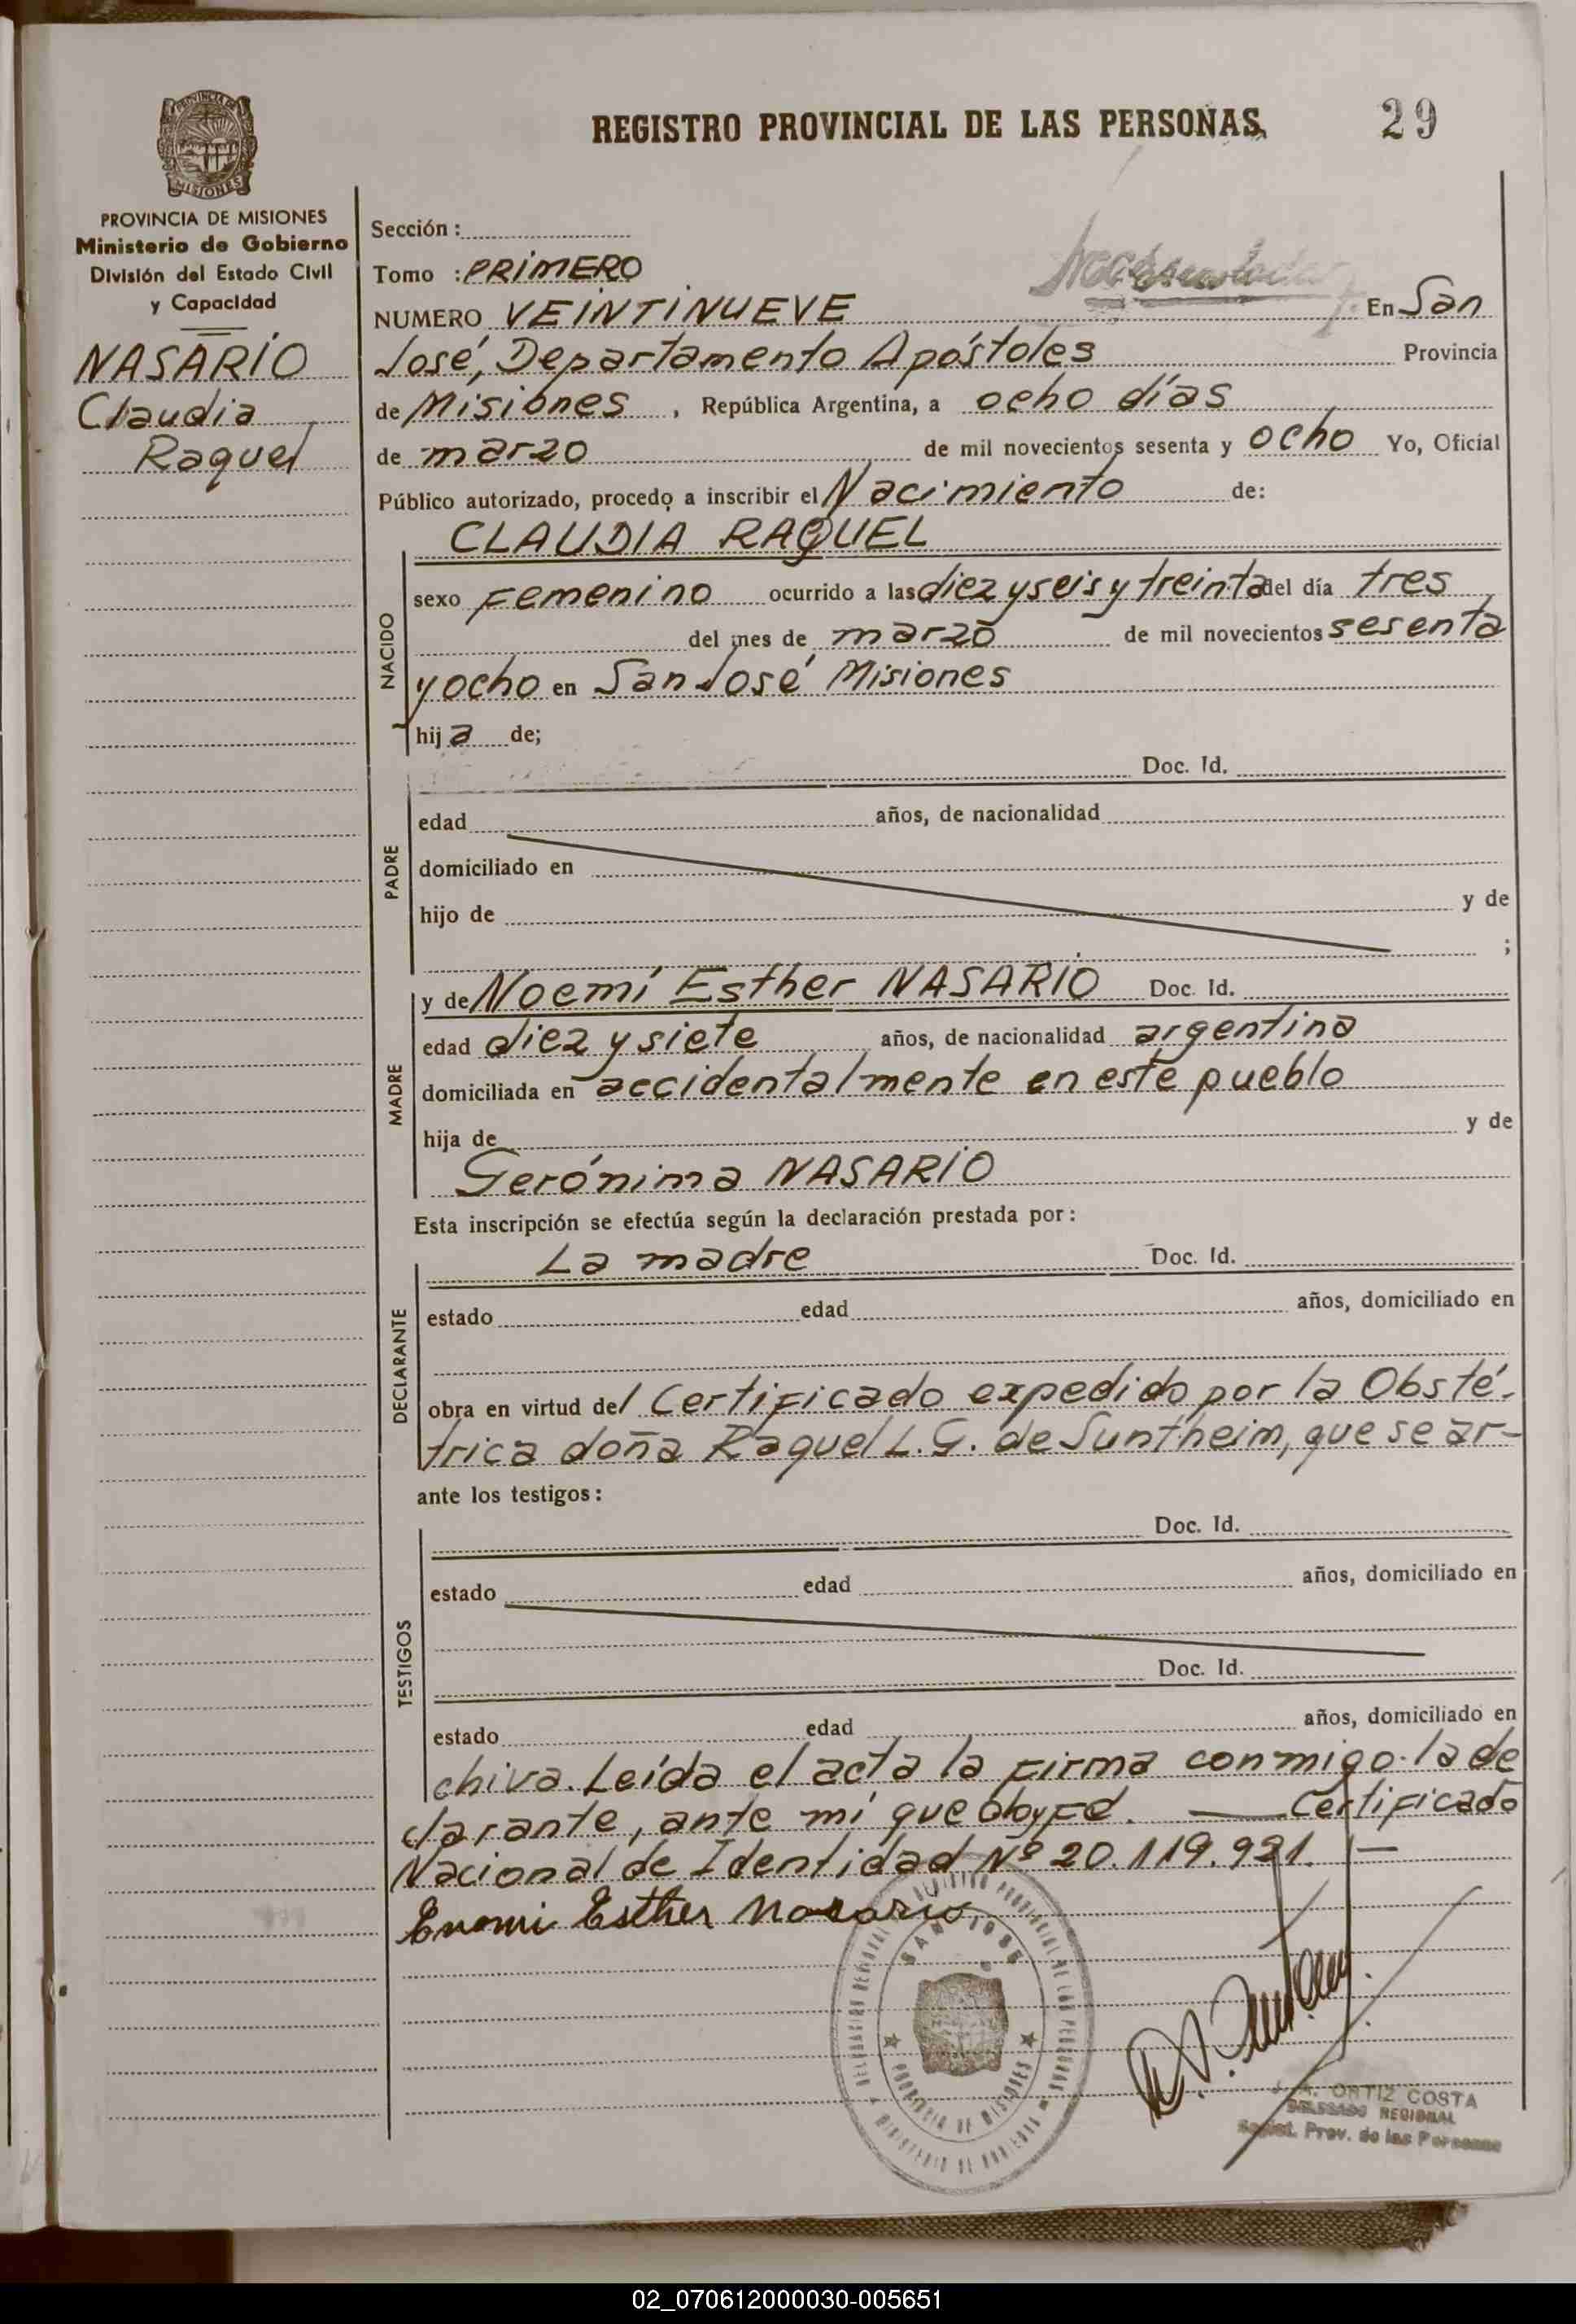 REGISTRO PROVINCIAL DE LAS PERSONAS
29
PROVINCIA DE MISIONES
PROVINCIA DE MISIONES
Ministerio de Gobierno
División del Estado Civil
y Capacidad
NASARIO
Claudia
Raquel
Sección :
Tomo : PRIMERO
NUMERO VEINTINUEVE En San
José, Departamento Apóstoles Provincia
de Misiones , República Argentina, a ocho días
de marzo de mil novecientos sesenta y ocho Yo, Oficial
Público autorizado, procedo a inscribir el Nacimiento de:
CLAUDIA RAQUEL
NACIDO
sexo Femenino ocurrido a las diez y seis y treinta del día tres
del mes de marzo de mil novecientos sesenta
y ocho en San José Misiones
hija de;
Doc. Id.
PADRE
edad años, de nacionalidad
domiciliado en
hijo de y de
;
MADRE
y de Noemí Esther NASARIO Doc. Id.
edad diez y siete años, de nacionalidad argentina
domiciliada en accidentalmente en este pueblo
hija de y de
Gerónima NASARIO
Esta inscripción se efectúa según la declaración prestada por :
La madre Doc. Id.
DECLARANTE
estado edad años, domiciliado en
obra en virtud del Certificado expedido por la Obsté-
trica doña Raquel L. G. de Suntheim, que se ar-
ante los testigos :
Doc. Id.
TESTIGOS
estado edad años, domiciliado en
Doc. Id.
estado edad años, domiciliado en
chiva. Leída el acta la firma conmigo la de
clarante, ante mí que doy Fé. — Certificado
Nacional de Identidad Nº 20.119.921. —
Esther Nasario
SAN JOSE
PROVINCIA DE MISIONES
A. ORTIZ COSTA
DELEGADO REGIONAL
Prov. de las Personas
02_070612000030-005651